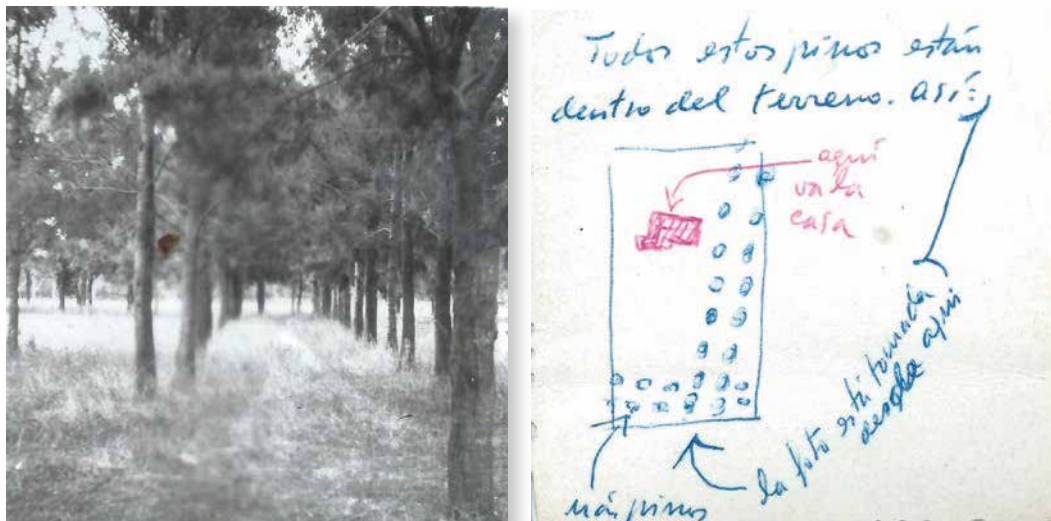 Todos estos pinos están
dentro del terreno. así:
aquí
va la
casa
la foto está tomada
desde aquí
más pinos